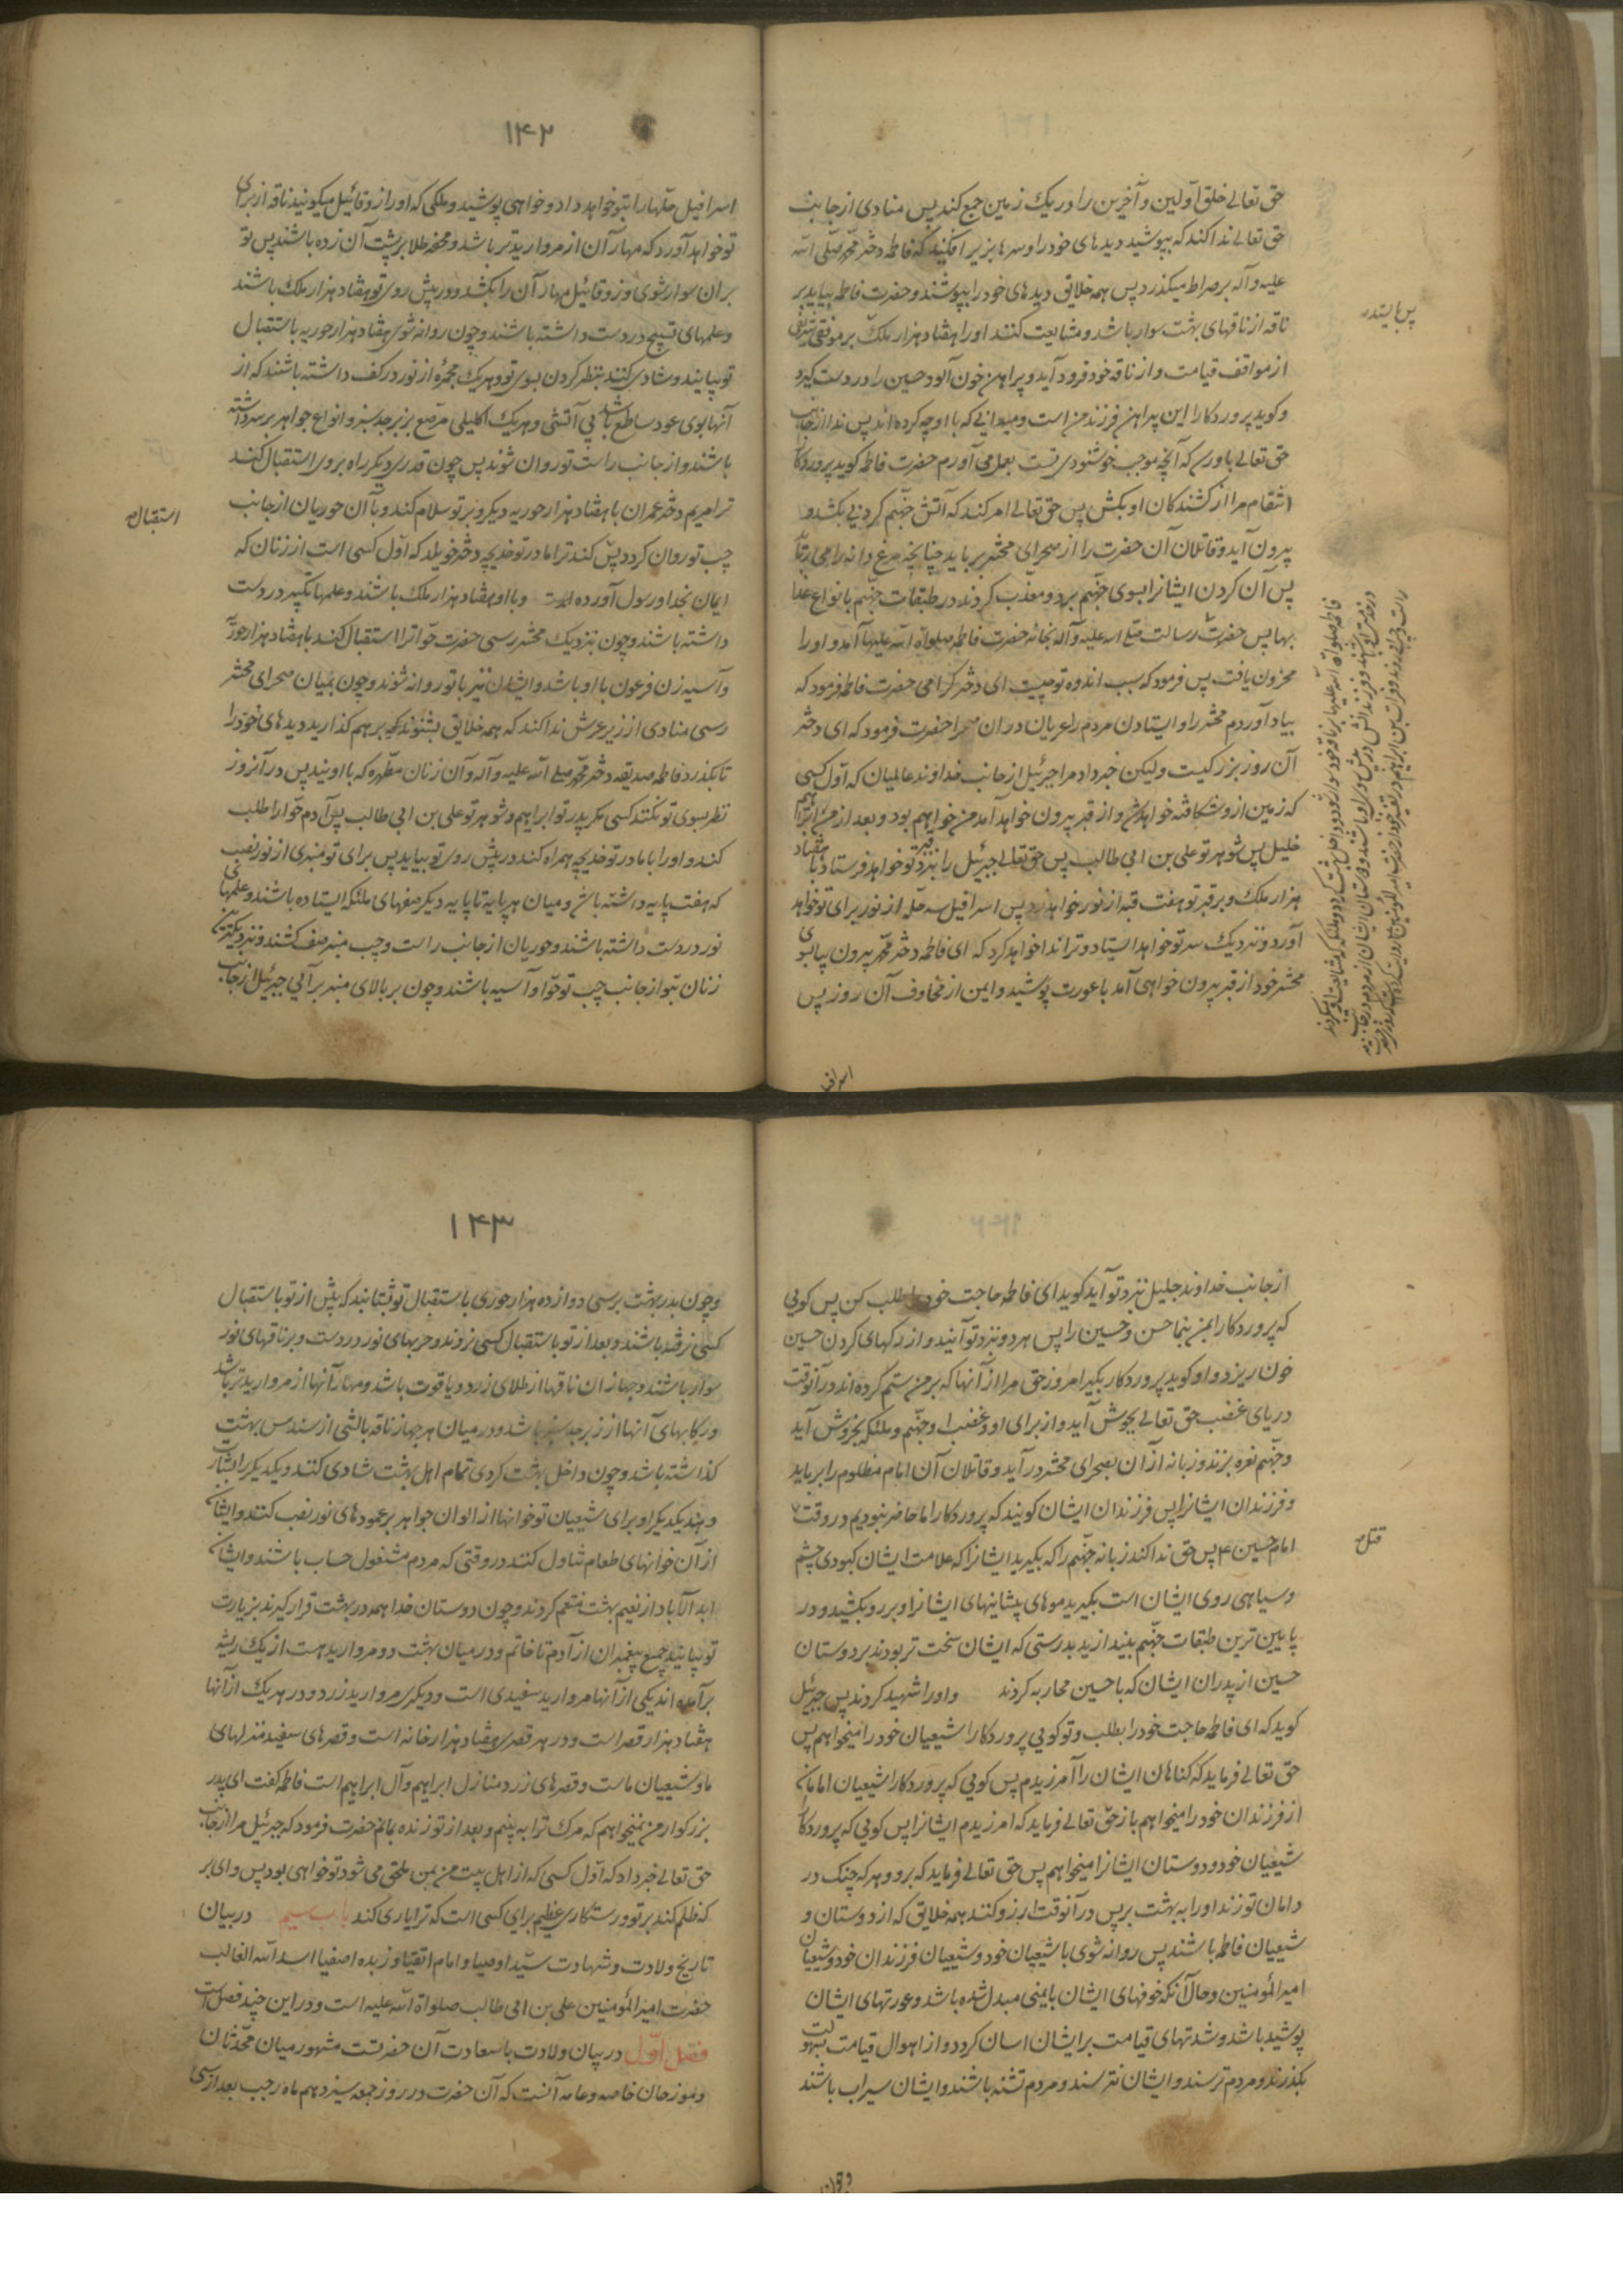 حق تعالی خلق اولین و آخرین را در یک زمین جمع کند پس منادی از جانب
حق تعالی ندا کند که بپوشید دیدهای خود را و سرها بزیر افکنید که فاطمه دختر محمد صلی الله
علیه و آله بر صراط میگذرد پس همه خلایق دیدهای خود را بپوشند و حضرت فاطمه بیاید بر
ناقه از ناقهای بهشت سوار باشد و مشایعت کنند او را هفتاد هزار ملک بر موقفی
از مواقف قیامت و از ناقه خود فرود آید و پیراهن خون آلود حسین را در دست گیرد
و گوید پروردگارا این پیراهن فرزند من است و میدانی که با او چه کرده‌اند پس ندا از جانب
حق تعالی باو رسد که آنچه موجب خوشنودی تست بعمل می آورم حضرت فاطمه گوید پروردگارا
انتقام مرا از کشندکان او بکش پس حق تعالی امر کند که آتش جهنم کردنی بکشد و
بیرون آید و قاتلان آن حضرت را از صحرای محشر برباید چنانچه مرغ دانه را می رباید
پس آن کردن ایشانرا بسوی جهنم برد و معذب کردند در طبقات جهنم بانواع عذا
بها پس حضرت رسالت صلی الله علیه و آله بخانه حضرت فاطمه صلواة الله علیها آمد و او را
محزون یافت پس فرمود که سبب اندوه تو چیست ای دختر گرامی حضرت فاطمه فرمود که
بیاد آوردم محشر را و ایستادن مردم را عریان در ان صحرا حضرت فرمود که ای دختر
آن روز بزرکیست ولیکن خبر داد مرا جبرئیل از جانب خداوند عالمیان که اول کسی
که زمین از و شکافته خواهد شد و از قبر بیرون خواهد آمد من خواهم بود و بعد از من ابراهیم
خلیل پس شوهر تو علی بن ابی طالب پس حق تعالی جبرئیل را بنزد قبر تو خواهد فرستاد با هفتاد
هزار ملک و بر قبر تو هفت قبه از نور خواهد زد پس اسرافیل سه حله از نور برای تو خواهد
آورد و نزدیک سر تو خواهد ایستاد و ترا ندا خواهد کرد که ای فاطمه دختر محمد بیرون بیا بسوی
محشر خود از قبر بیرون خواهی آمد با عورت پوشید و ایمن از مخاوف آن روز پس
اسرافیل
۱۴۲
اسرافیل حلّها را بتو خواهد داد و خواهی پوشید و ملکی که او را زوقائیل میکویند ناقه از برای
تو خواهد آورد که مهار آن از مروارید تر باشد و محفه طلا بر پشت آن زده باشند پس تو
بران سوار شوی و زوقائیل مهار آن را بکشد و در پیش روی تو هفتاد هزار ملک باشند
و علمهای تسبیح در دست داشته باشند و چون روانه شوی هفتاد هزار حوریه باستقبال
تو بیایند و شادی کنند بنظر کردن بسوی تو و هر یک مجمره از نور در کف داشته باشند که از
آنها بوی عود ساطع باشد بی آتشی و هر یک اکلیلی مرصع بزبرجد سبز و انواع جواهر بر سر داشته
باشند و از جانب راست تو روان شوند پس چون قدری دیکر راه بروی استقبال کند
ترا مریم دختر عمران با هفتاد هزار حوریه دیکر و بر تو سلام کند و با آن حوریان از جانب
استقبال
چپ تو روان کردد پس کند ترا مادر تو خدیجه دختر خویلد که اول کسی است از زنان که
ایمان بخدا و رسول آورده است و با او هفتاد هزار ملک باشند و علمها تکبیر در دست
داشته باشند و چون نزدیک محشر رسی حضرت حوا ترا استقبال کند با هفتاد هزار حور
و آسیه زن فرعون با او باشد و ایشان نیز با تو روانه شوند و چون بمیان صحرای محشر
رسی منادی از زیر عرش ندا کند که همه خلایق بشنوند که بر هم کذارید دیدهای خود را
تا بکذرد فاطمه صدیقه دختر محمد صلی الله علیه و آله و آن زنان مطهره که با اویند پس در آنروز
نظر بسوی تو نکند کسی مکر پدر تو ابراهیم و شوهر تو علی بن ابی طالب پس آدم حوا را طلب
کند و او را با مادر تو خدیجه همراه کند در پیش روی تو بیاید پس برای تو منبری از نور نصب
که هفت پایه داشته باشد و میان هر پایه تا پایه دیکر صفهای ملئکه ایستاده باشند و علمهای
نور در دست داشته باشند و حوریان از جانب راست و چپ منبر صف کشند و نزدیکترین
زنان بتو از جانب چپ تو حوا و آسیه باشند و چون بر بالای منبر بر آیی جبرئیل از جانب
از جانب خداوند جلیل بنزد تو آید کوید ای فاطمه حاجت خود را طلب کن پس کویی
که پروردکارا بمن بنما حسن و حسین را پس هر دو بنزد تو آیند و از رکهای کردن حسین
خون ریزد و او کوید پروردکارا بکیر امروز حق مرا از آنها که بر من ستم کرده اند در آنوقت
دریای غضب حق تعالی بجوش آید و از برای او و غضب او جهنم و ملئکه بخروش آید
و جهنم نعره بزند و زبانه از آن بصحرای محشر در آید و قاتلان آن امام مظلوم را برباید
و فرزندان ایشانرا پس فرزندان ایشان کویند که پروردکارا ما حاضر نبودیم در وقت
قتل
امام حسین ع پس حق ندا کند زبانه جهنم را که بکیرید ایشانرا که علامت ایشان کبودی چشم
و سیاهی روی ایشان است بکیرید موهای پیشانیهای ایشانرا و بر رو بکشید و در
پایین ترین طبقات جهنم بیندازید بدرستی که ایشان سخت تر بودند بر دوستان
حسین از پدران ایشان که با حسین محاربه کردند و او را شهید کردند پس جبرئیل
کوید که ای فاطمه حاجت خود را بطلب و تو کویی پروردکارا شیعیان خود را میخواهم پس
حق تعالی فرماید که کناهان ایشان را آمرزیدم پس کویی که پروردکارا شیعیان امامان
از فرزندان خود را میخواهم باز حق تعالی فرماید که امرزیدم ایشانرا پس کویی که پروردکارا
شیعیان خود و دوستان ایشانرا میخواهم پس حق تعالی فرماید که برو و هر که چنک در
دامان تو زند او را به بهشت بر پس در آنوقت ارزو کنند همه خلایق که از دوستان و
شیعیان فاطمه باشند پس روانه شوی با شیعیان خود و شیعیان فرزندان خود و شیعیان
امیر المؤمنین و حال آنکه خوفهای ایشان بایمنی مبدل شده باشد و عورتهای ایشان
پوشید باشد و شدتهای قیامت بر ایشان اسان کردد و از اهوال قیامت بسهولت
بکذرند و مردم ترسند و ایشان نترسند و مردم تشنه باشند و ایشان سیراب باشند
و چون
۱۴۳
و چون بدر بهشت برسی دوازده هزار حوری باستقبال تو بشتابند که پیش از تو باستقبال
کسی نرفته باشند و بعد از تو باستقبال کسی نروند و حربهای نور در دست و بر ناقهای نور
سوار باشند و جهاز ان ناقها از طلای زرد و یاقوت باشد و مهار آنها از مروارید تر باشد
و رکابهای آنها از زبرجد سبز باشد و در میان هر جهاز ناقه بالشی از سندس بهشت
کذاشته باشد و چون داخل بهشت کردی تمام اهل بهشت شادی کنند و یکدیکر را بشارت
دهند یکدیکر او برای شیعیان تو خوانها از الوان جواهر بر عمودهای نور نصب کنند و ایشان
از آن خوانهای طعام تناول کنند در وقتی که مردم مشغول حساب باشند و ایشان
ابد الآباد از نعیم بهشت متنعم کردند و چون دوستان خدا همه در بهشت قرار کیرند بزیارت
تو بیایند جمیع پیغمبران از آدم تا خاتم و در میان بهشت دو مروارید هست از یک ریشه
برآمده اند یکی از آنها مروارید سفیدی است و دیکری مروارید زرد و در هر یک از آنها
هفتاد هزار قصر است و در هر قصری هفتاد هزار خانه است و قصرهای سفید منزلهای
ما و شیعیان ماست و قصرهای زرد منازل ابراهیم و آل ابراهیم است فاطمه کفت ای پدر
بزرکوار من نمیخواهم که مرک ترا به بینم و بعد از تو زنده بمانم حضرت فرمود که جبرئیل مرا از جانب
حق تعالی خبر داد که اول کسی که از اهل بیت من بمن ملحق می شود تو خواهی بود پس وای بر
که ظلم کند بر تو و رستکاری عظیم برای کسی است که ترا یاری کند باب سیم در بیان
تاریخ ولادت و شهادت سید اوصیا و امام اتقیا و زبده اصفیا اسد الله الغالب
حضرت امیر المؤمنین علی بن ابی طالب صلواة الله علیه است و در این چند فصل است
فصل اول در بیان ولادت با سعادت آن حضرتست مشهور میان محدثان
و مورخان خاصه و عامه آنست که آن حضرت در روز جمعه سیزدهم ماه رجب بعد از سی